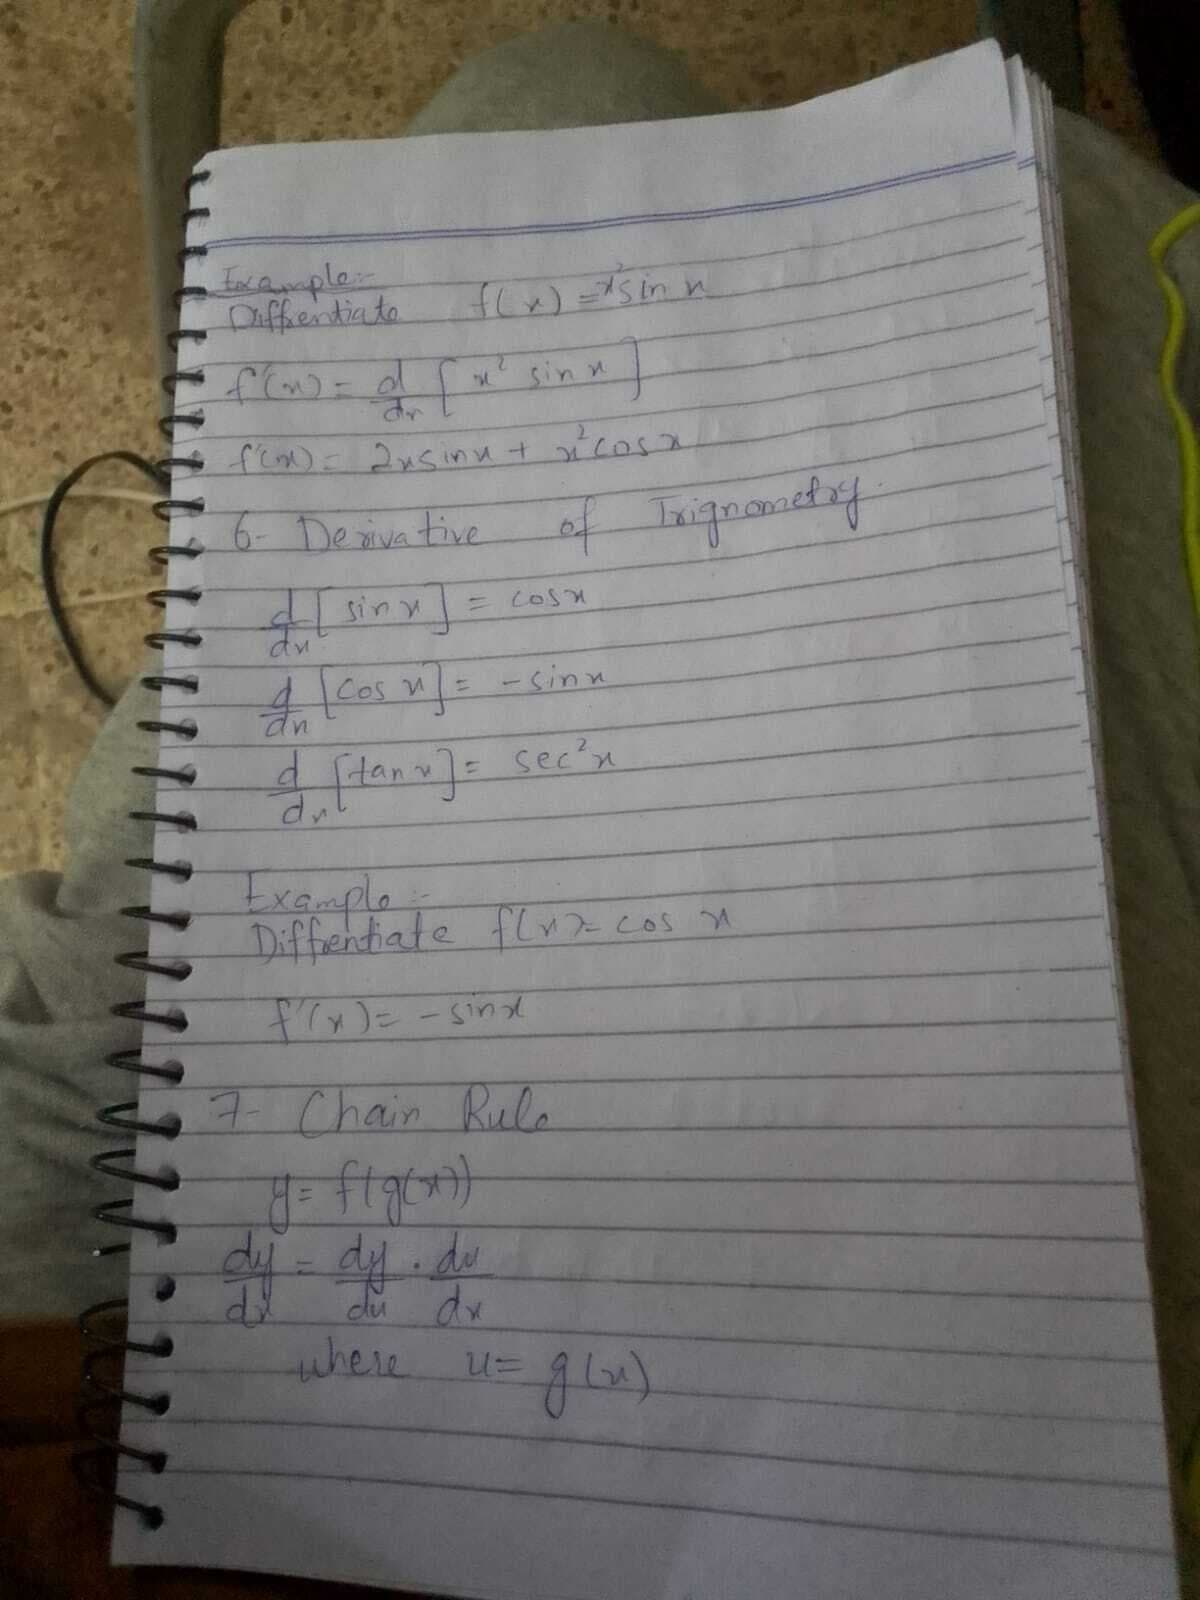 Example:-
Diffrentiate f(x) = x² sin x
f'(x) = d/dx [x² sin x]
f'(x) = 2x sin x + x² cos x
6- Derivative of Trignometry.
d/dx [sin x] = cos x
d/dx [cos x] = - sin x
d/dx [tan x] = sec² x
Example:-
Diffrentiate f(x) = cos x
f'(x) = - sin x
7- Chain Rule
y = f(g(x))
dy/dx = dy/du . du/dx
where u = g(x)